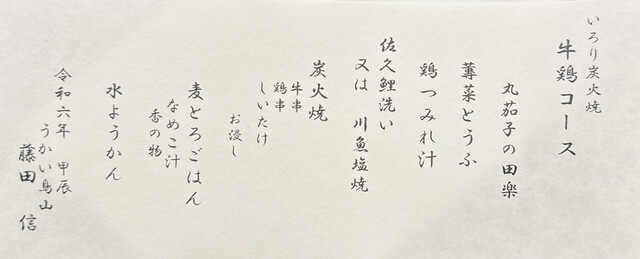 いろり炭火焼
牛鶏コース
丸茄子の田楽
蓴菜とうふ
鶏つみれ汁
佐久鯉洗い
又は 川魚塩焼
炭火焼
牛串
鶏串
しいたけ
お浸し
麦とろごはん
なめこ汁
香の物
水ようかん
令和六年 甲辰
うかい鳥山
藤田 信